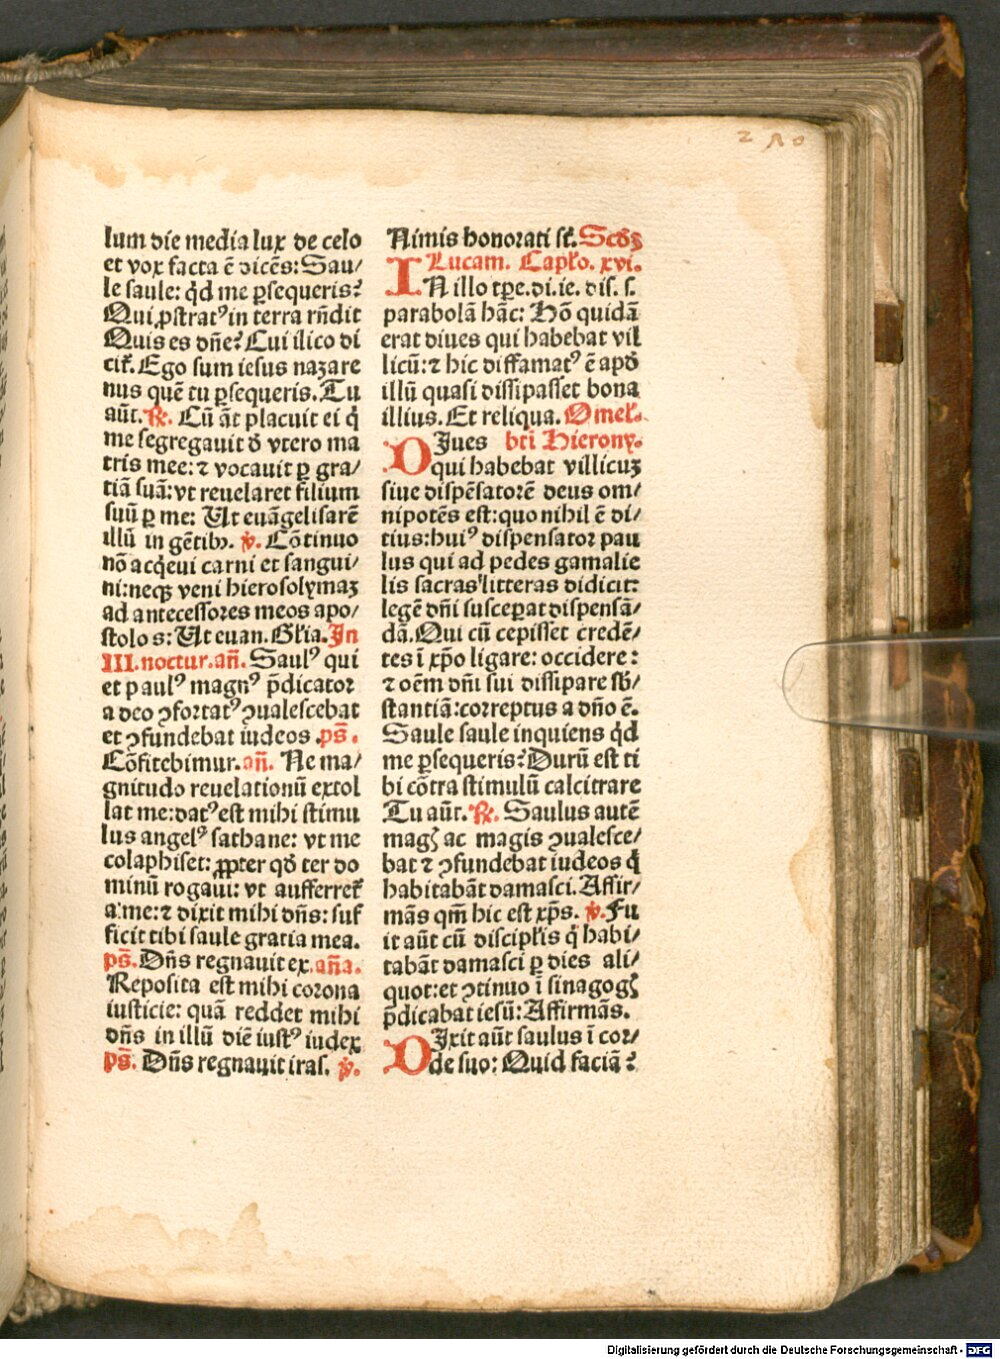 2 Λ 0
lum die media lux de celo
et vox facta ē dicēs: Sau/
le saule: qd me ꝑsequeris?
Qui ꝓstratꝰ in terra rn̄dit
Quis es dn̄e? Cui ilico di
cit᷑. Ego sum iesus nazare
nus quē tu ꝑsequeris. Tu
aūt. ℟. Cū āt placuit ei q̇
me segregauit ď vtero ma
tris mee: ⁊ vocauit ꝑ gra/
tiā suā: vt reuelaret filium
suū ꝑ me: Ut euāgelisarē
illū in gētibꝫ. ℣. Cōtinuo
nō acq̇eui carni et sangui/
ni: neqꝫ veni hierosolymaꝫ
ad antecessores meos apo/
stolos: Ut euan. Gl̓ia. In
III. noctur. an̄. Saulꝰ qui
et paulꝰ magnꝰ p̄dicator
adeo ꝯfortatꝰ ꝯualescebat
et ꝯfundebat iudeos. ps̄.
Cōfitebimur. an̄. Ne ma/
gnitudo reuelationū extol
lat me: datꝰ est mihi stimu
lus angelꝰ sathane: vt me
colaphiset: ꝓpter qď ter do
minū rogaui: vt aufferret᷑
a me: ⁊ dixit mihi dn̄s: suf
ficit tibi saule gratia mea.
ps̄. Dn̄s regnauit ex. an̄a.
Reposita est mihi corona
iusticie: quā reddet mihi
dn̄s in illū diē iustꝰ iudex
ps̄. Dn̄s regnauit iras. ℣.
Nimis honorati st̄. Scďꝫ
Lucam. Capł̓o. xvi.
IN illo tp̄e. di. ie. dis. s.
parabolā hāc: Hō quidā
erat diues qui habebat vil
licū: ⁊ hic diffamatꝰ ē apď
illū quasi dissipasset bona
illius. Et reliqua. Omel̓.
DIues bti̅ Hierony.
qui habebat villicuꝫ
siue dispēsatorē deus om/
nipotēs est: quo nihil ē di/
tius: huiꝰ dispensator pau
lus qui ad pedes gamalie
lis sacras litteras didicit:
legē dn̄i susceꝑat dispensā/
dā. Qui cū cepisset credē/
tes ī xp̄o ligare: occidere:
⁊ oēm dn̄i sui dissipare sƀ/
stantiā: correptus a dn̄o ē.
Saule saule inquiens qd
me ꝑsequeris? Durū est ti
bi cōtra stimulū calcitrare
Tu aūt. ℟. Saulus autē
magꝭ ac magis ꝯualesce/
bat ⁊ ꝯfundebat iudeos q̇
habitabāt damasci. Affir/
mās qm̄ hic est xp̄s. ℣. Fu
it aūt cū discipl̓is q̇ habi/
tabāt damasci ꝑ dies ali/
quot: et ꝯtinuo ī sinagogꝭ
p̄dicabat iesū: Affirmās.
DIxit aūt saulus ī cor/
de suo: Quid faciā?
Digitalisierung gefördert durch die Deutsche Forschungsgemeinschaft - DFG